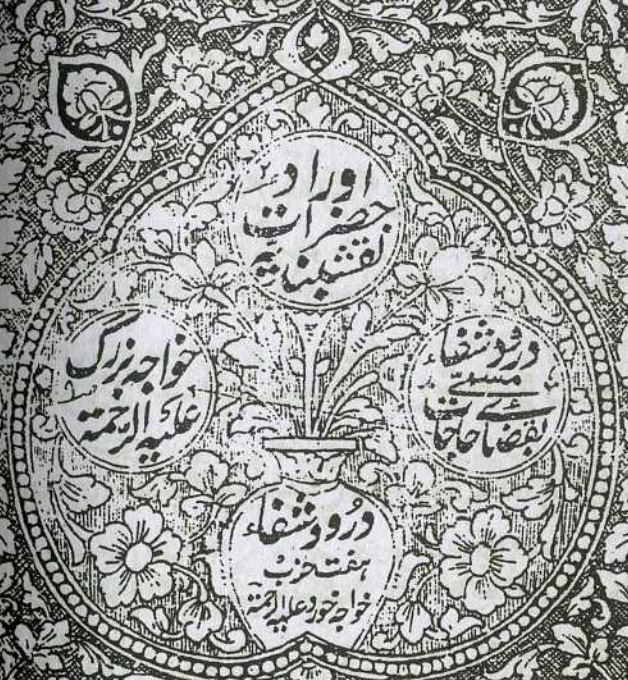 اوراد
حضرات
نقشبندیہ
درود شفاء
مسمّٰی
بقضائے حاجات
خواجہ بزرگ
علیہ الرحمۃ
درود شفاء
ہفت حزب
خواجہ خورد علیہ الرحمۃ